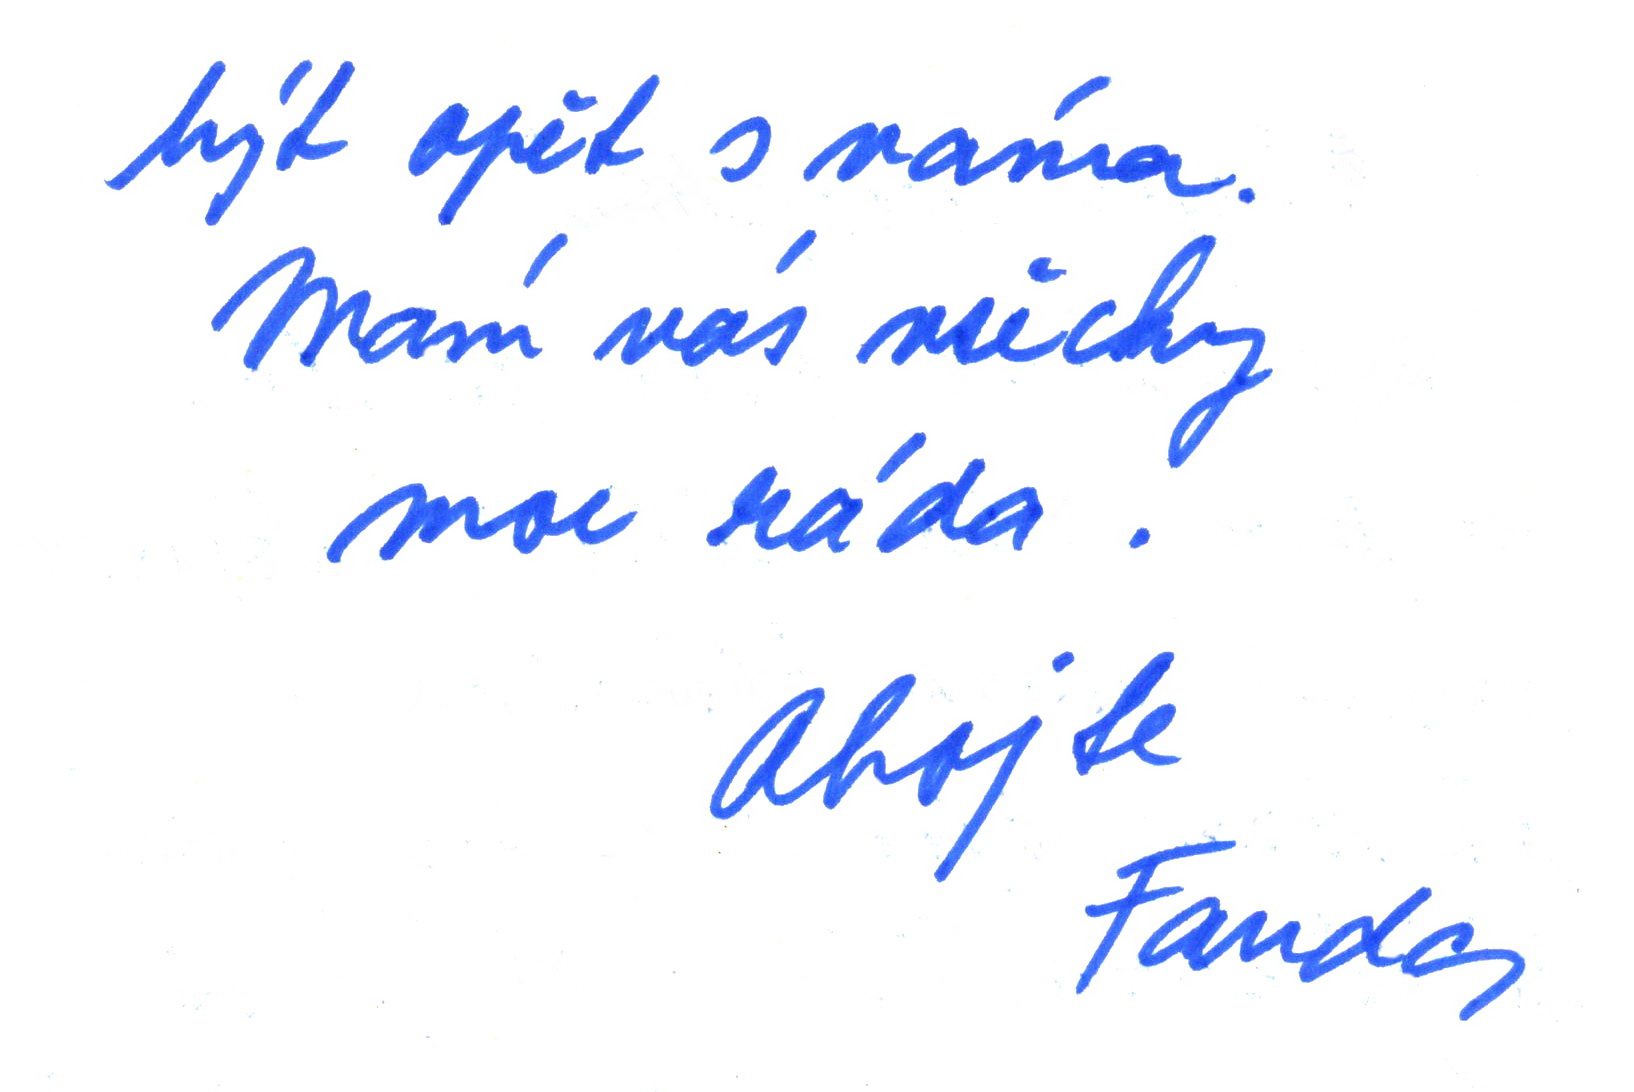 být opět s váma.
Mám vás všechy
moc ráda.
Ahojte
Fanda